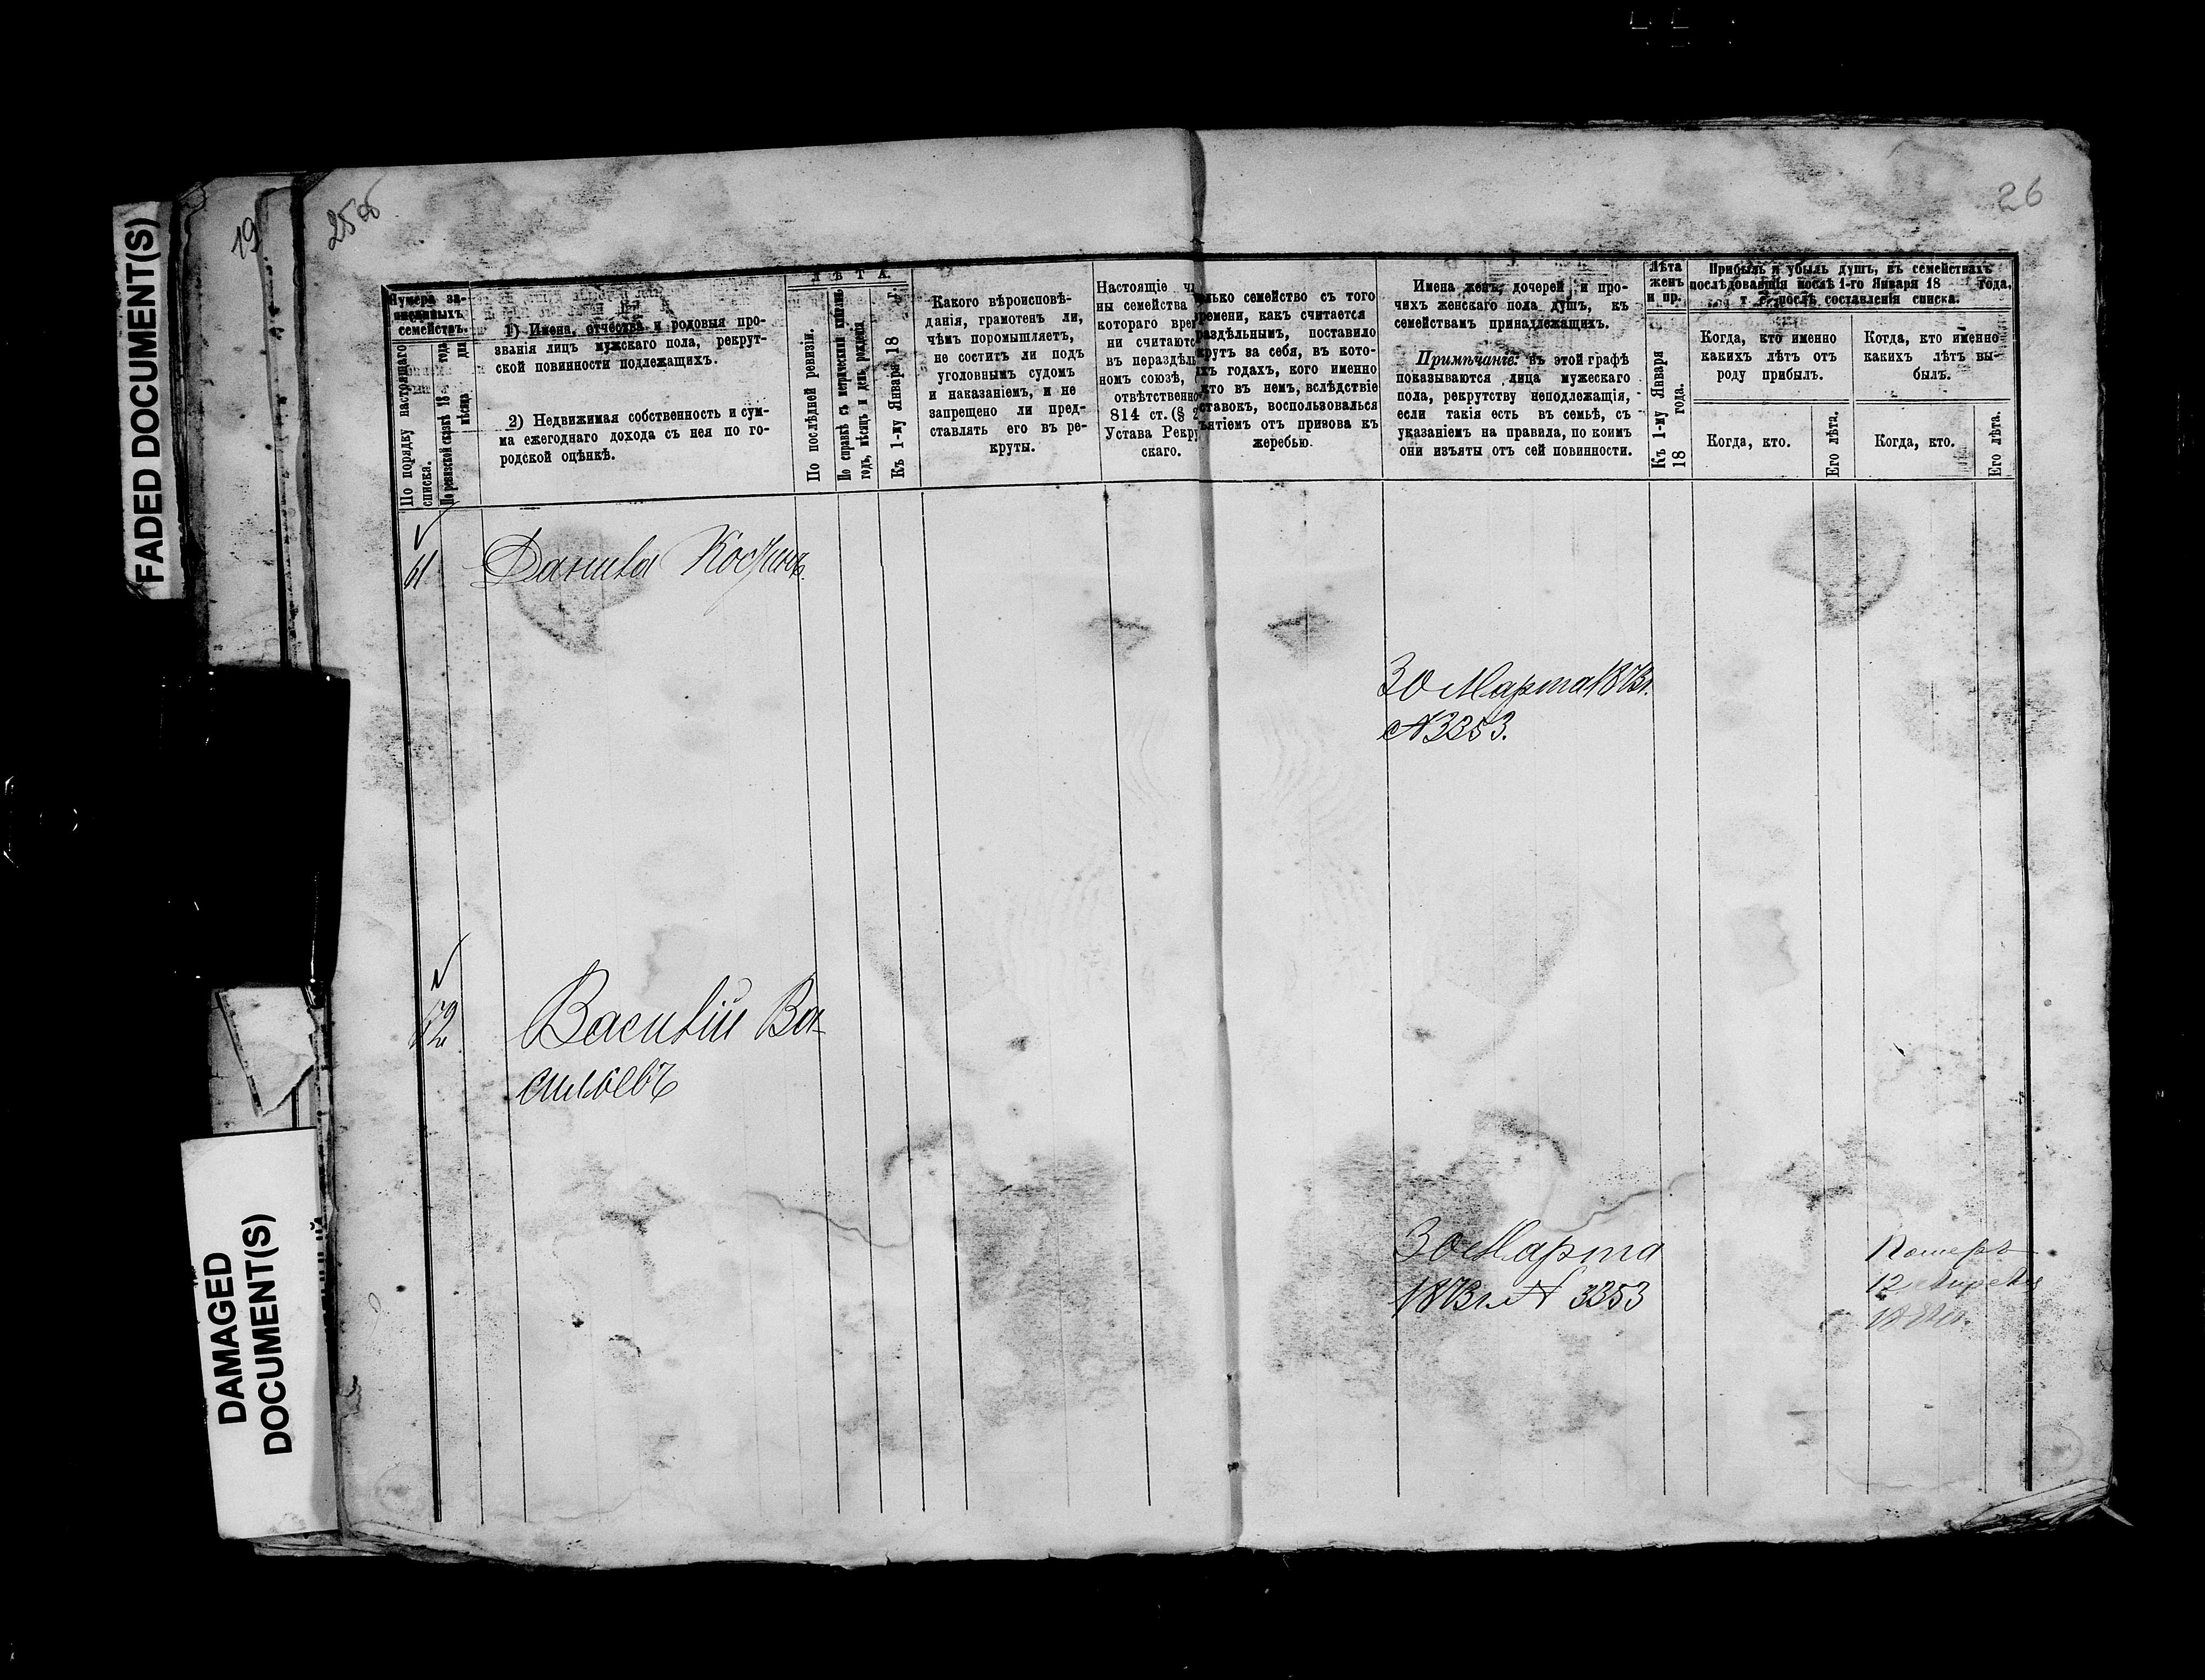 FADED DOCUMENT(S)
DAMAGED
DOCUMENT(S)
19
26
Нумера за-
писанныхъ
семействъ.
По порядку настоящаго
списка.
По ревизской сказкѣ 18 года
мѣсяца дня
1) Имена, отчества и родовыя про-
званія лицъ мужскаго пола, рекрут-
ской повинности подлежащихъ.
2) Недвижимая собственность и сум-
ма ежегоднаго дохода съ нея по го-
родской оцѣнкѣ.
ЛѢТА.
По послѣдней ревизіи.
По справкѣ съ метрическихъ книгъ
годъ, мѣсяцъ и день рожденія
Къ 1-му Января 18 г.
Какого вѣроисповѣ-
данія, грамотенъ ли,
чѣмъ поромышляетъ,
не соститъ ли подъ
уголовнымъ судомъ
и наказаніемъ, и не
запрещено ли пред-
ставлять его въ ре-
круты.
Настоящіе чл
ны семейства
котораго врем
ни считаютс
въ нераздѣль
номъ союзѣ,
отвѣтственно
814 ст. (§ 2
Устава Рекру
скаго.
олько семейство съ того
ремени, какъ считается
раздѣльнымъ, поставило
крутъ за себя, въ кото-
ыхъ годахъ, кого именно
кто въ немъ, вслѣдствіе
ставокъ, воспользовалься
ъятіемъ отъ призова къ
жеребью.
Имена женъ, дочерей и про-
чихъ женскаго пола душъ, къ
семействамъ принадлежащихъ.
Примѣчаніе: въ этой графѣ
показываются лица мужескаго
пола, рекрутству неподлежащія,
если такія есть въ семьѣ, съ
указаніемъ на правила, по коимъ
они изъяты отъ сей повинности.
Лѣта
женъ
и пр.
Къ 1-му Января
18 года.
Прибыль и убыль душъ, въ семействахъ
послѣдовавшія послѣ 1-го Января 18 года,
т. е. послѣ составленія списка.
Когда, кто именно
какихъ лѣтъ отъ
роду прибылъ.
Когда, кто именно
какихъ лѣтъ вы-
былъ.
Когда, кто.
Его лѣта.
Когда, кто.
Его лѣта.
61 Данила
30 Марта 1873г.
№3353.
Василій Ва-
сильевъ
30 Марта
1873г № 3353
Померъ
12 Апрѣля